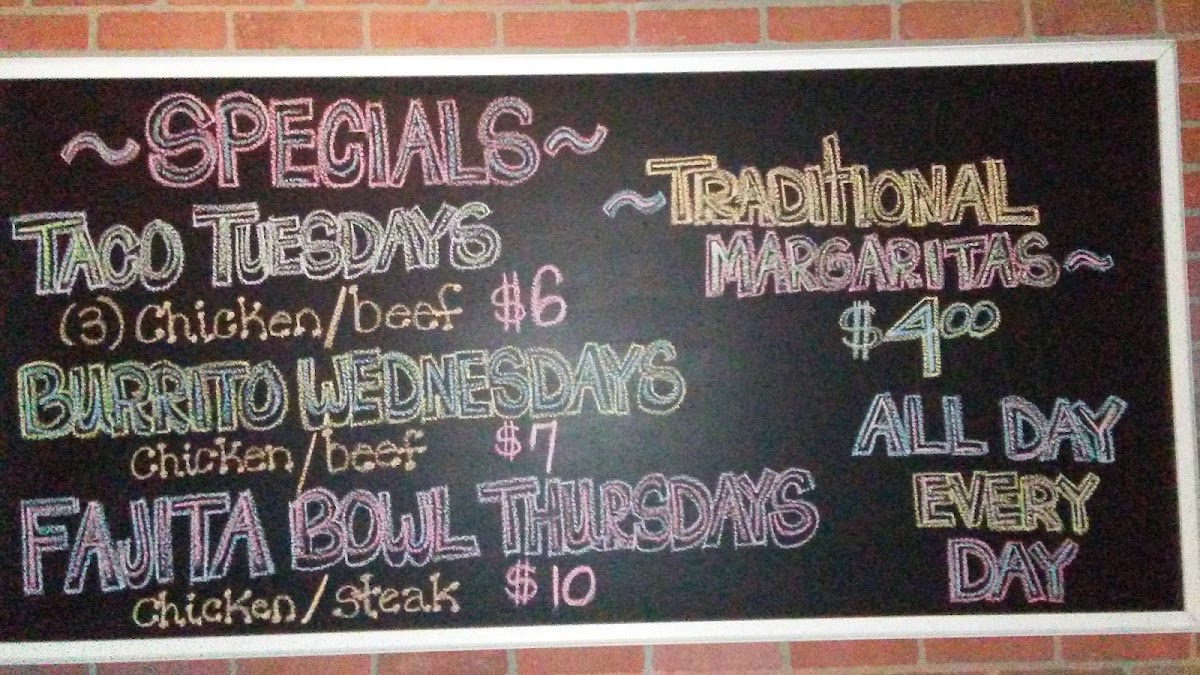 ~SPECIALS~
TACO TUESDAYS
(3) Chicken/beef $6
BURRITO WEDNESDAYS
Chicken/beef $7
FAJITA BOWL THURSDAYS
Chicken/steak $10
~TRADITIONAL
MARGARITAS~
$400
ALL DAY
EVERY
DAY